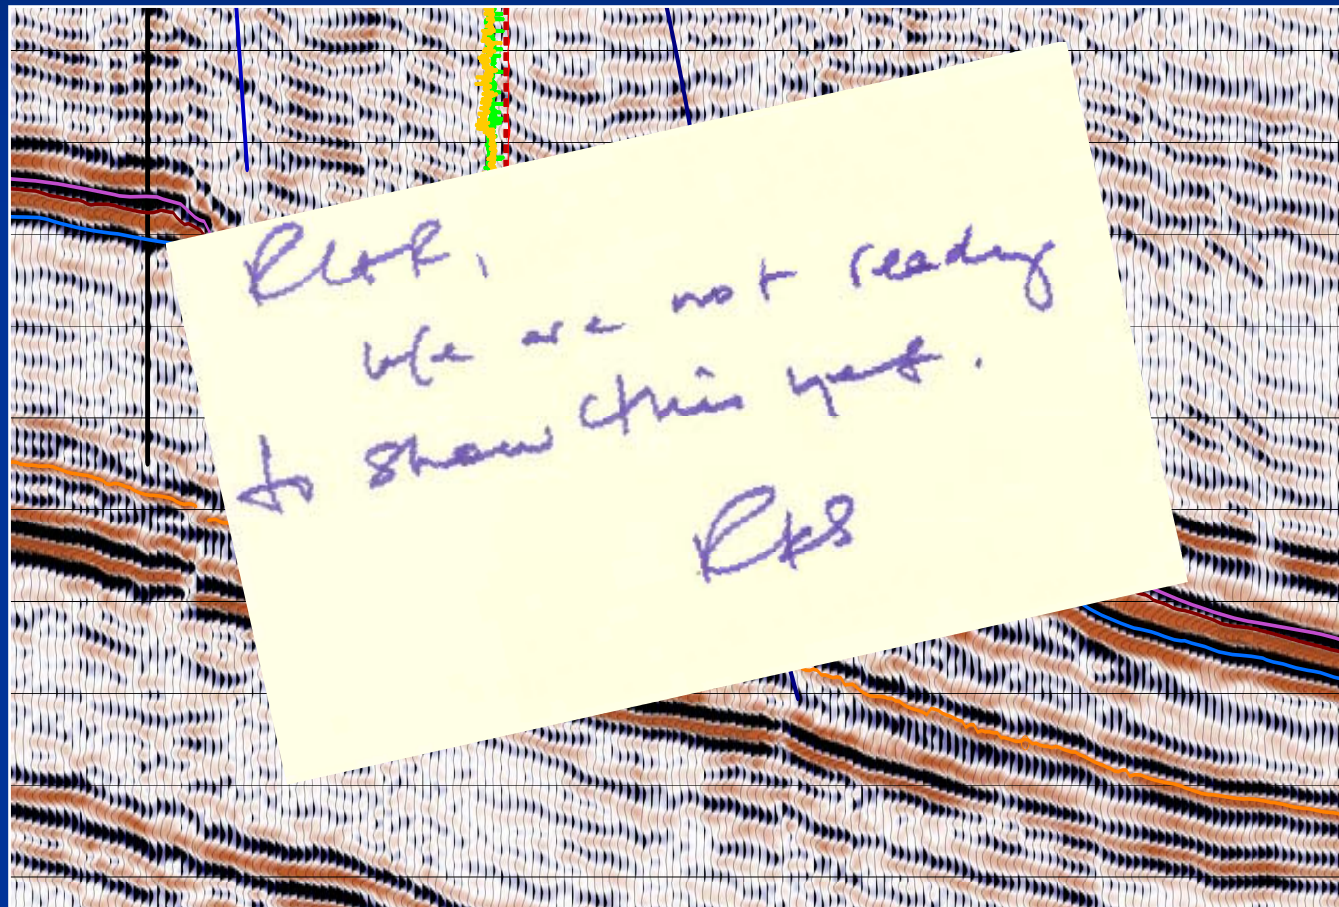 We are not ready
to show this yet.
RKS